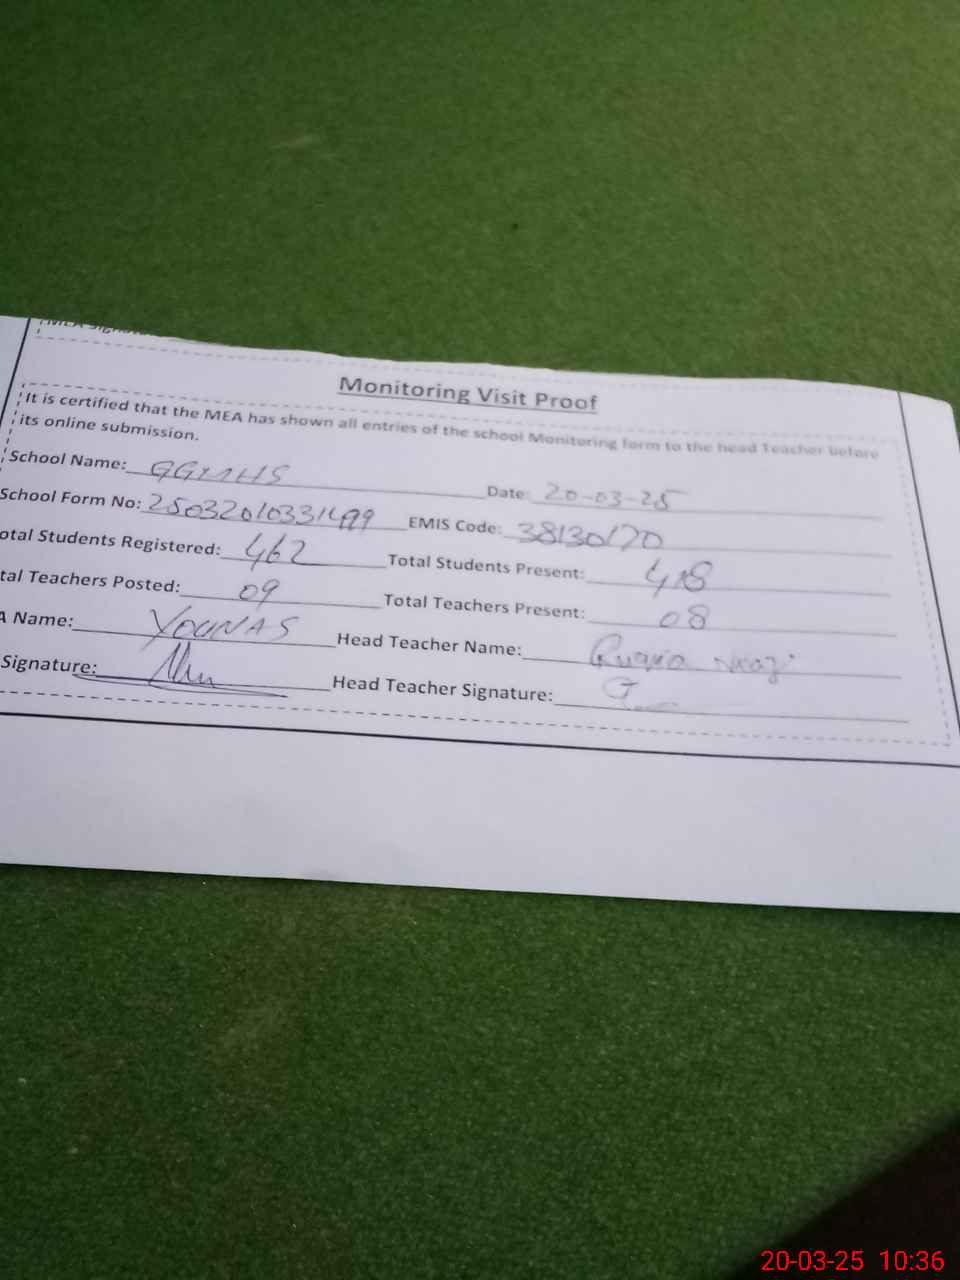 Monitoring Visit Proof
It is certified that the MEA has shown all entries of the school Monitoring form to the head Teacher before
its online submission.
School Name: GGMHS Date: 20-03-25
School Form No: 25032010331499 EMIS Code: 38130170
otal Students Registered: 462 Total Students Present: 418
tal Teachers Posted: 09 Total Teachers Present: 08
A Name: YOUNAS Head Teacher Name: Ruqia
Signature: Head Teacher Signature:
20-03-25 10:36